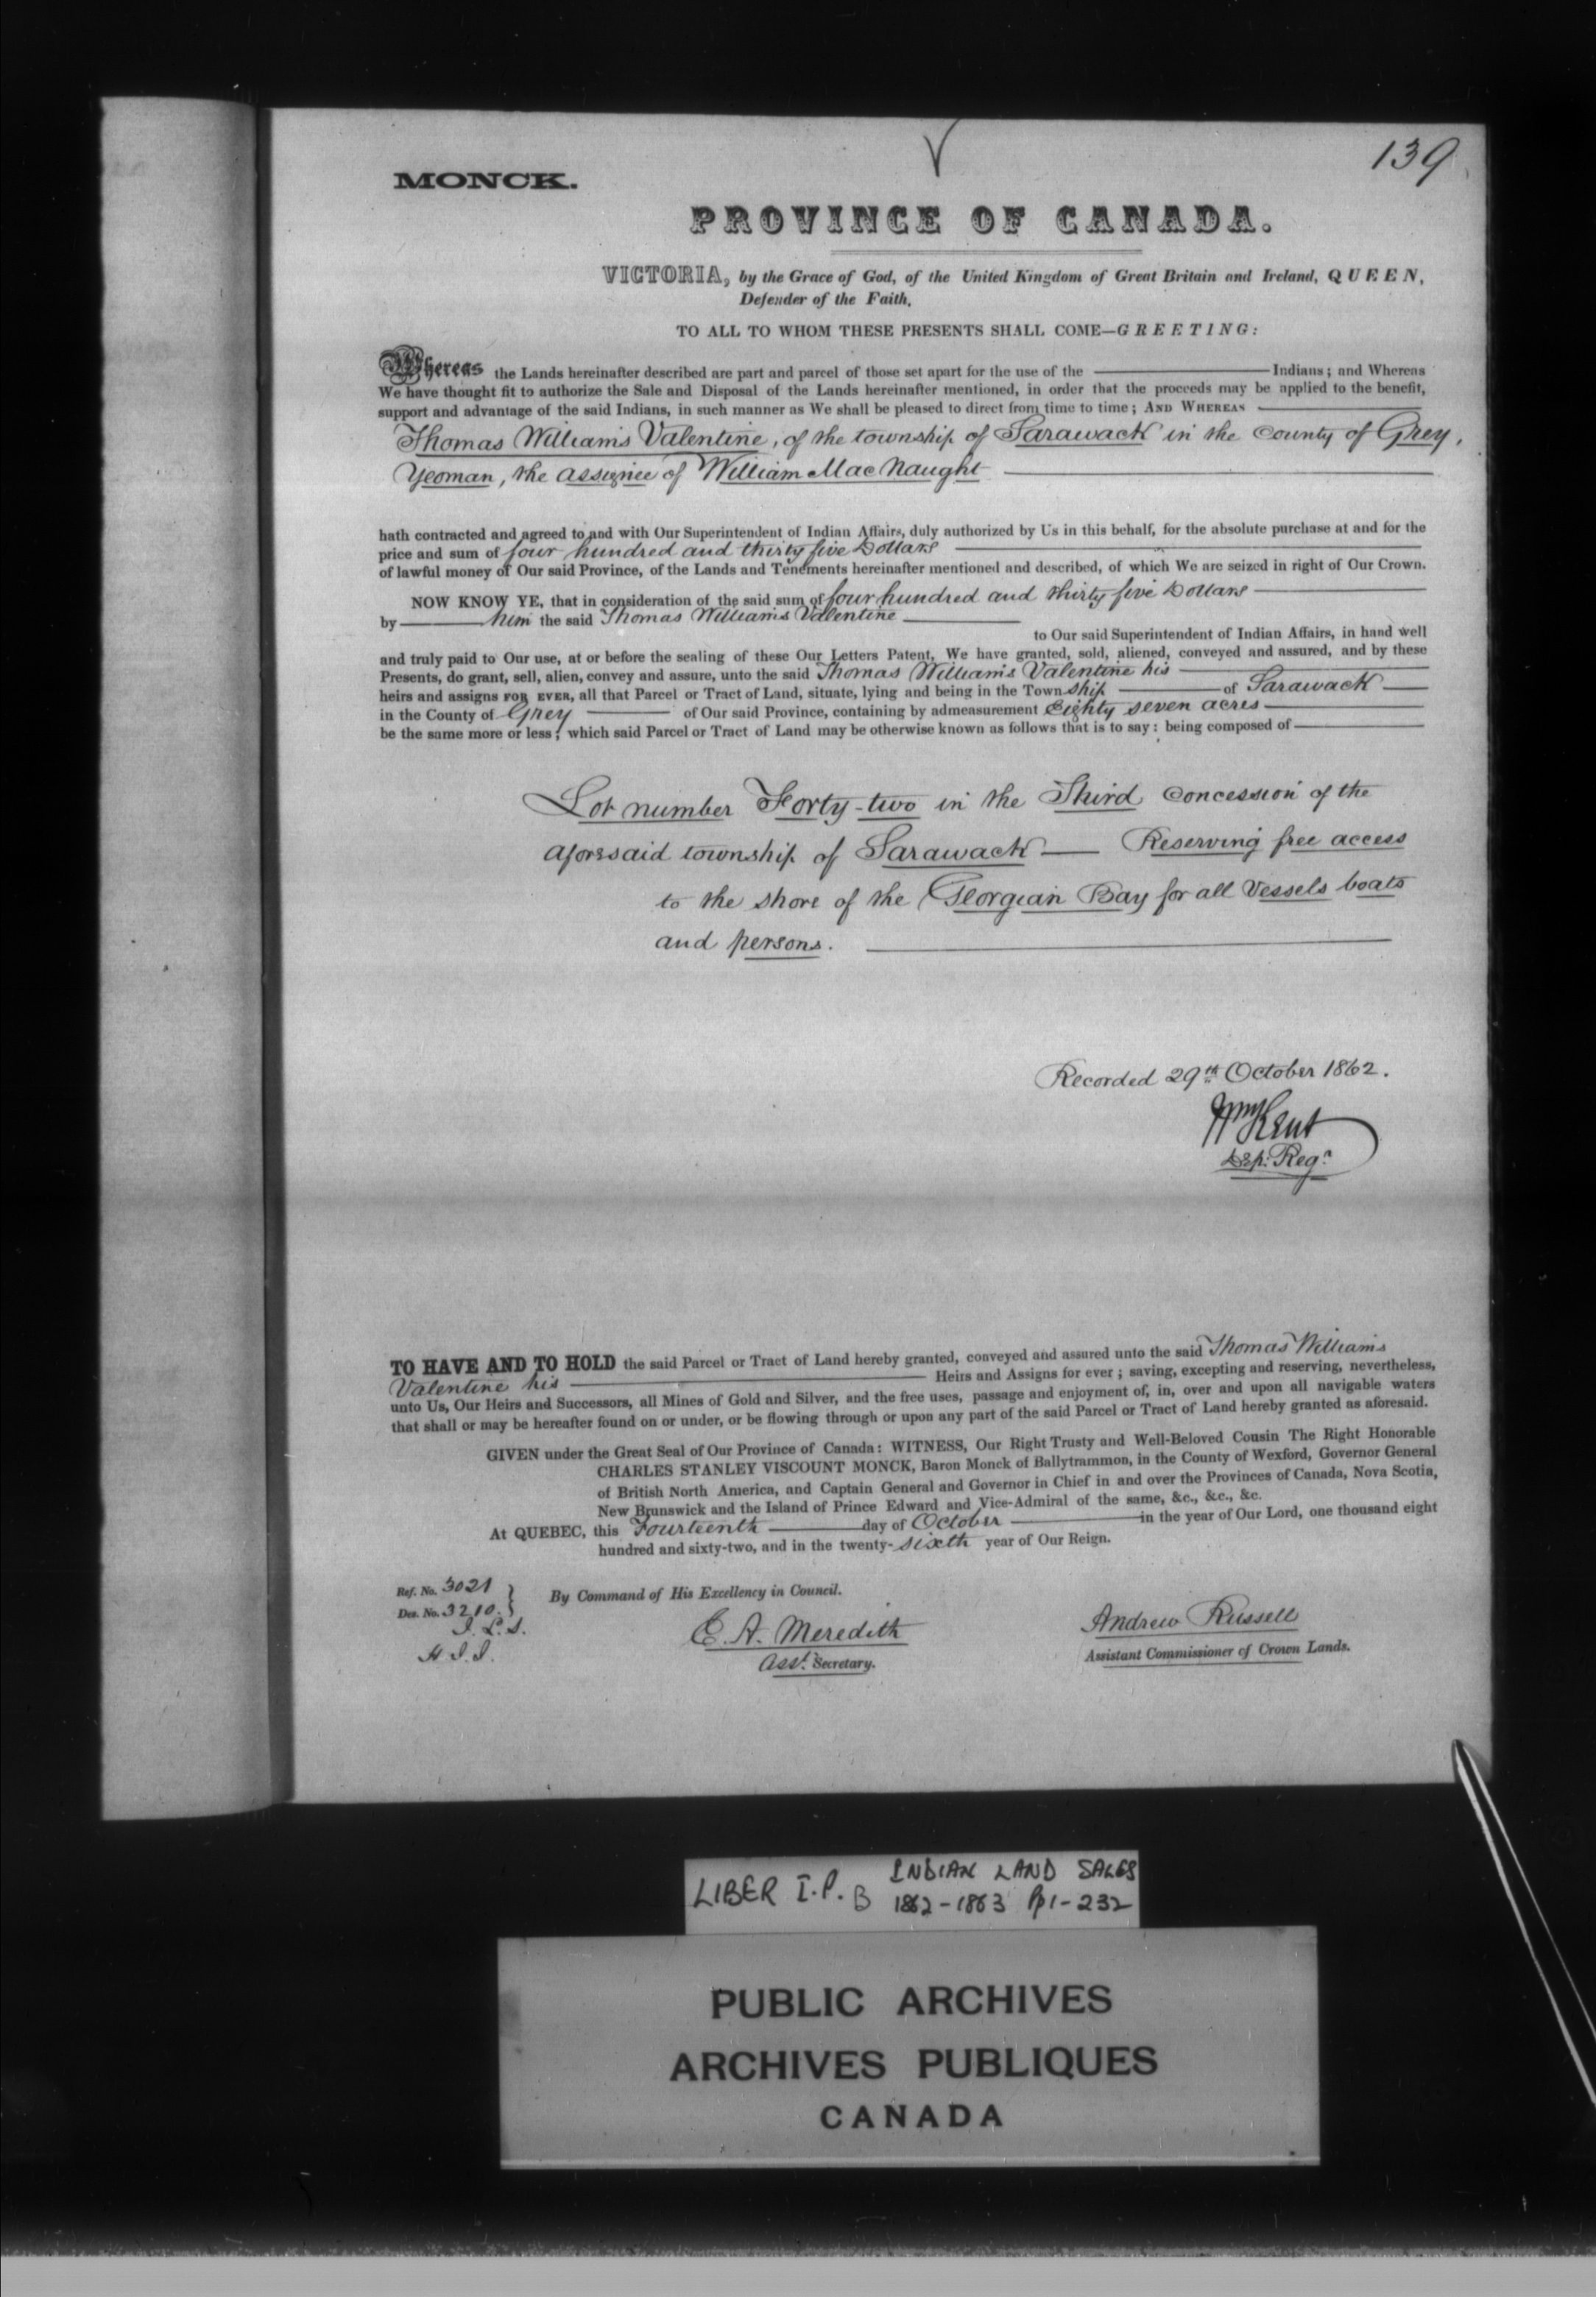 139
MONCK.
PROVINCE OF CANADA.
VICTORIA, by the Grace of God, of the United Kingdom of Great Britain and Ireland, QUEEN,
Defender of the Faith.
TO ALL TO WHOM THESE PRESENTS SHALL COME—GREETING:
Whereas the Lands hereinafter described are part and parcel of those set apart for the use of the ——— Indians; and Whereas
We have thought fit to authorize the Sale and Disposal of the Lands hereinafter mentioned, in order that the proceeds may be applied to the benefit,
support and advantage of the said Indians, in such manner as We shall be pleased to direct from time to time; AND WHEREAS ———
Thomas Williams Valentine, of the township of Sarawack in the County of Grey,
Yeoman, the assignee of William MacNaught ———
hath contracted and agreed to and with Our Superintendent of Indian Affairs, duly authorized by Us in this behalf, for the absolute purchase at and for the
price and sum of four hundred and thirty five Dollars ———
of lawful money of Our said Province, of the Lands and Tenements hereinafter mentioned and described, of which We are seized in right of Our Crown.
NOW KNOW YE, that in consideration of the said sum of four hundred and thirty five Dollars ———
by ——— him the said Thomas Williams Valentine ———
to Our said Superintendent of Indian Affairs, in hand well
and truly paid to Our use, at or before the sealing of these Our Letters Patent, We have granted, sold, aliened, conveyed and assured, and by these
Presents, do grant, sell, alien, convey and assure, unto the said Thomas Williams Valentine his ———
heirs and assigns FOR EVER, all that Parcel or Tract of Land, situate, lying and being in the Town ship ——— of Sarawack ———
in the County of Grey ——— of Our said Province, containing by admeasurement Eighty seven acres ———
be the same more or less; which said Parcel or Tract of Land may be otherwise known as follows that is to say: being composed of ———
Lot number Forty-two in the Third Concession of the
aforesaid township of Sarawack — Reserving free access
to the shore of the Georgian Bay for all Vessels boats
and persons. ———
Recorded 29th October 1862.
Wm Kent
Dep: Regr
TO HAVE AND TO HOLD the said Parcel or Tract of Land hereby granted, conveyed and assured unto the said Thomas Williams
Valentine his ——— Heirs and Assigns for ever; saving, excepting and reserving, nevertheless,
unto Us, Our Heirs and Successors, all Mines of Gold and Silver, and the free uses, passage and enjoyment of, in, over and upon all navigable waters
that shall or may be hereafter found on or under, or be flowing through or upon any part of the said Parcel or Tract of Land hereby granted as aforesaid.
GIVEN under the Great Seal of Our Province of Canada: WITNESS, Our Right Trusty and Well-Beloved Cousin The Right Honorable
CHARLES STANLEY VISCOUNT MONCK, Baron Monck of Ballytrammon, in the County of Wexford, Governor General
of British North America, and Captain General and Governor in Chief in and over the Provinces of Canada, Nova Scotia,
New Brunswick and the Island of Prince Edward and Vice-Admiral of the same, &c., &c., &c.
At QUEBEC, this Fourteenth ——— day of October ——— in the year of Our Lord, one thousand eight
hundred and sixty-two, and in the twenty-sixth year of Our Reign.
Ref. No. 3021 } By Command of His Excellency in Council.
Des. No. 3210. }
I. L. S.
E. A. Meredith
Asst. Secretary.
Andrew Russell
Assistant Commissioner of Crown Lands.
LIBER I.P. B INDIAN LAND SALES
1862-1863 Pp 1-232
PUBLIC ARCHIVES
ARCHIVES PUBLIQUES
CANADA